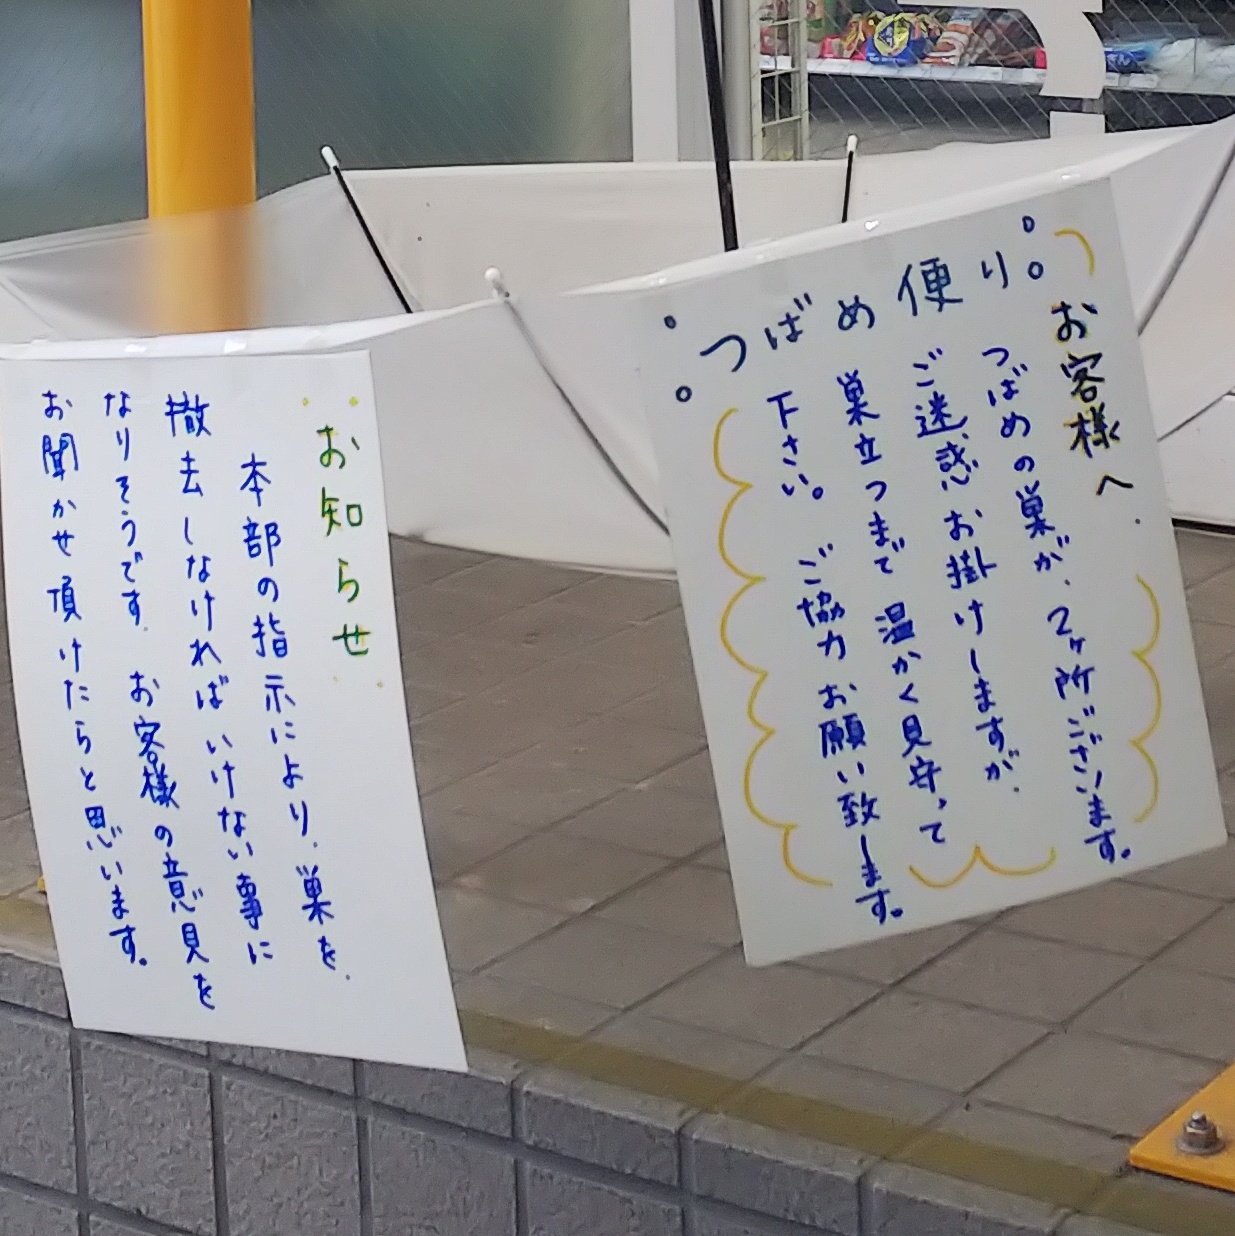 つばめ便り
お客様へ.
つばめの巣が、2ヶ所ございます。
ご迷惑お掛けしますが、
巣立つまで温かく見守って
下さい。ご協力お願い致します。
お知らせ
本部の指示により、巣を、
撤去しなければいけない事に
なりそうです。お客様の意見を
お聞かせ頂けたらと思います。